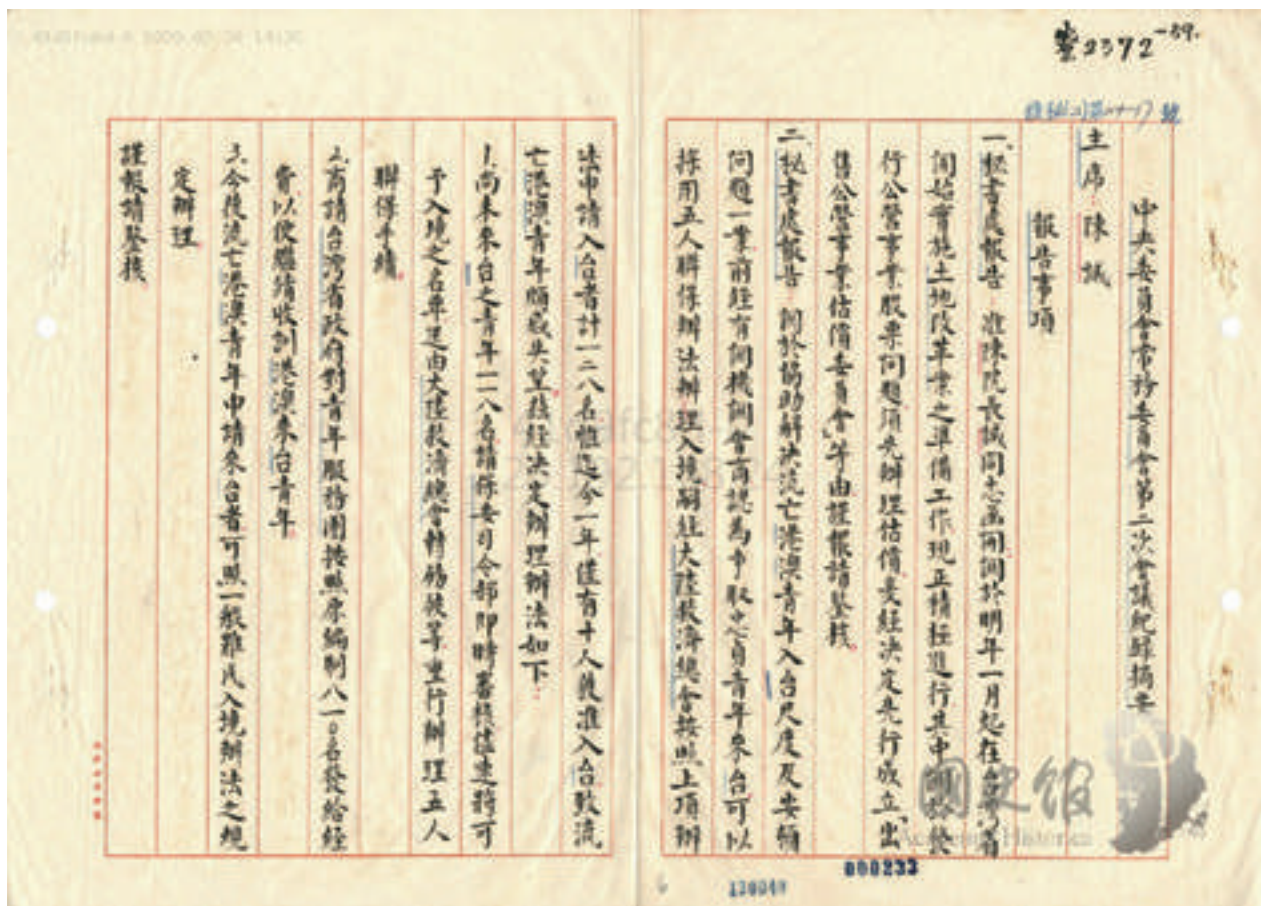 2372-89.
中央委員會常務委員會第二次會議紀錄摘要
主席 陳誠
報告事項
一、秘書處報告：准陳院長誠同志函開關於明年一月起在台灣省
開始實施土地改革案之準備工作現正積極進行其中關於發
行公營事業股票問題須先辦理估價爰經決定先行成立「出
售公營事業估價委員會」等由謹報請鑒核。
二、秘書處報告：關於協助解決流亡港澳青年入台尺度及安頓
問題一案前經有關機關會商認為爭取忠貞青年來台可以
採用五人聯保辦法辦理入境嗣經大陸救濟總會按照上項辦
法申請入台者計一二八名惟迄今一年僅有十人獲准入台致流
亡港澳青年頗感失望茲經決定辦理辦法如下：
1.尚未來台之青年一一八名請保安司令部即時審核儘速將可
予入境之名單逕由大陸救濟總會轉飭彼等重行辦理五人
聯保手續。
2.商請台灣省政府對青年服務團按照原編制八一〇名發給經
費以便繼續收訓港澳來台青年
3.今後流亡港澳青年申請來台者可照一般難民入境辦法之規
定辦理
謹報請鑒核
國史館
Academia Historica
000233
130040